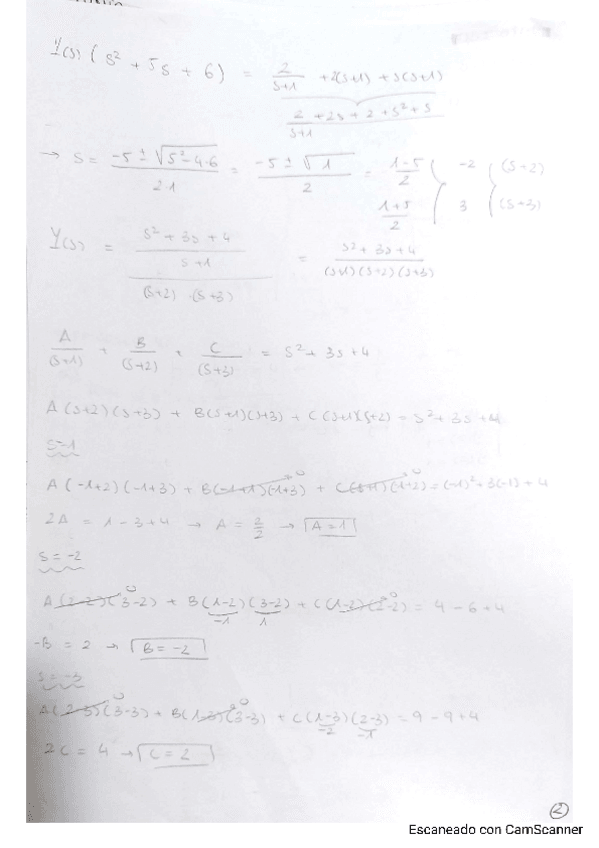 Y(s) (s² + 5s + 6) = 2/(s+1) + 2(s+1) + s(s+1)
2/(s+1) + 2s + 2 + s² + s
→ s = (-5 ± √(5²-4·6))/(2·1) = (-5 ± √1)/2 = (1-5)/2 { -2 { (s+2)
(1+5)/2 3 (s+3)
Y(s) = ((s² + 3s + 4)/(s+1))/((s+2)·(s+3)) = (s² + 3s + 4)/((s+1)(s+2)(s+3))
A/(s+1) + B/(s+2) + C/(s+3) = s² + 3s + 4
A(s+2)(s+3) + B(s+1)(s+3) + C(s+1)(s+2) = s² + 3s + 4
s=-1
A(-1+2)(-1+3) + B(-1+1)(-1+3) 0 + C(-1+1)(-1+2) 0 = (-1)² + 3(-1) + 4
2A = 1 - 3 + 4 → A = 2/2 → A = 1
s = -2
A(2-2)(3-2) 0 + B(1-2)(3-2) + C(1-2)(2-2) 0 = 4 - 6 + 4
-1 1
-B = 2 → B = -2
s = -3
A(2-3)(3-3) 0 + B(1-3)(3-3) 0 + C(1-3)(2-3) = 9 - 9 + 4
-2 -1
2C = 4 → C = 2
2
Escaneado con CamScanner